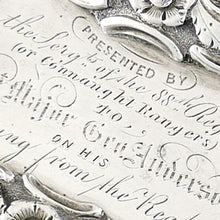 PRESENTED BY
the Serg.ts of the 88th Reg
(or Connaught Rangers)
TO
Major Geo. Anders
ON HIS
ing from the Regt